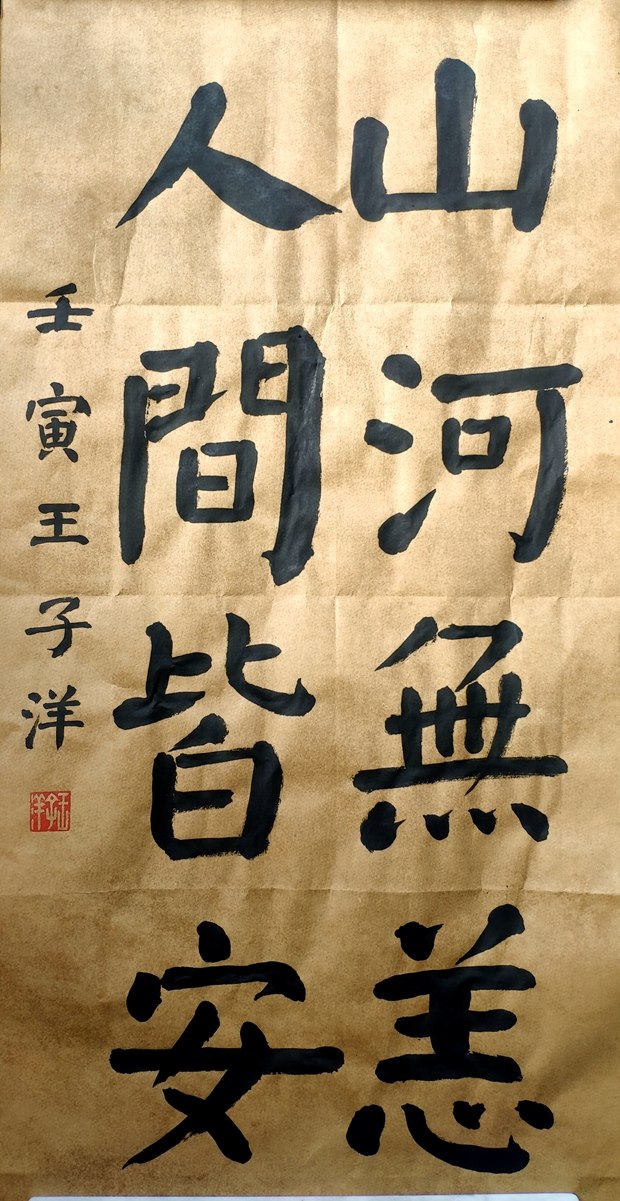 山河無恙
人間皆安
壬寅王子洋
王子洋